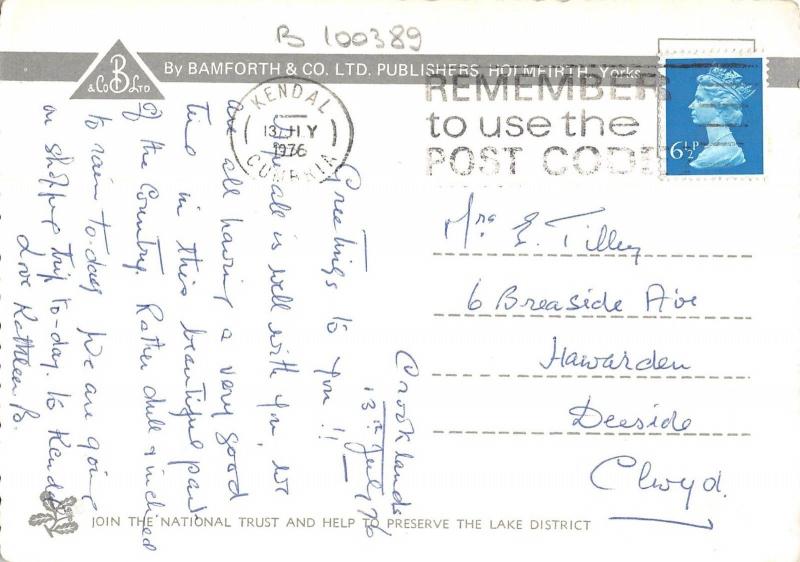 B 100389
B
& Co LTD
By BAMFORTH & CO. LTD. PUBLISHERS, HOLMFIRTH, Yorks.
KENDAL
13 JLY
1976
CUMBRIA
REMEMBER
to use the
POST CODE
6½P
Crooklands
13th July 76
Greetings to you!!
Hope all is well with you, we
are all having a very good
time in this beautiful part
of the Country. Rather dull & inclined
to rain to-day. We are going
on shopping trip to-day to Kendal
Love Kathleen B.
Mrs E. Tilley
6 Breaside Ave
Hawarden
Deeside
Clwyd.
JOIN THE NATIONAL TRUST AND HELP TO PRESERVE THE LAKE DISTRICT